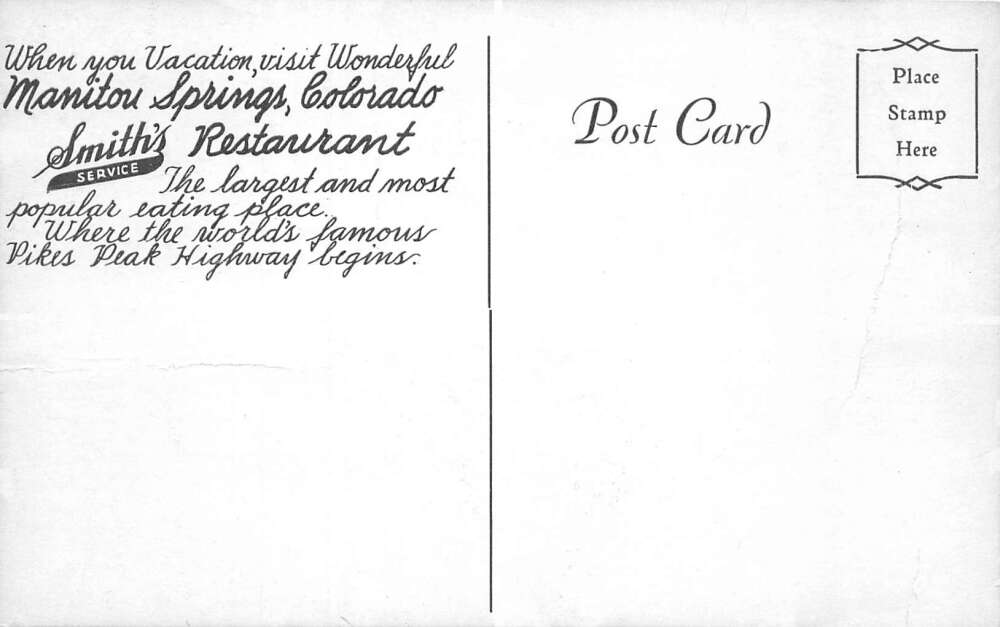 When you Vacation, visit Wonderful
Manitou Springs, Colorado
Smith's Restaurant
SERVICE
The largest and most
popular eating place.
Where the world's famous
Pikes Peak Highway begins.
Post Card
Place
Stamp
Here